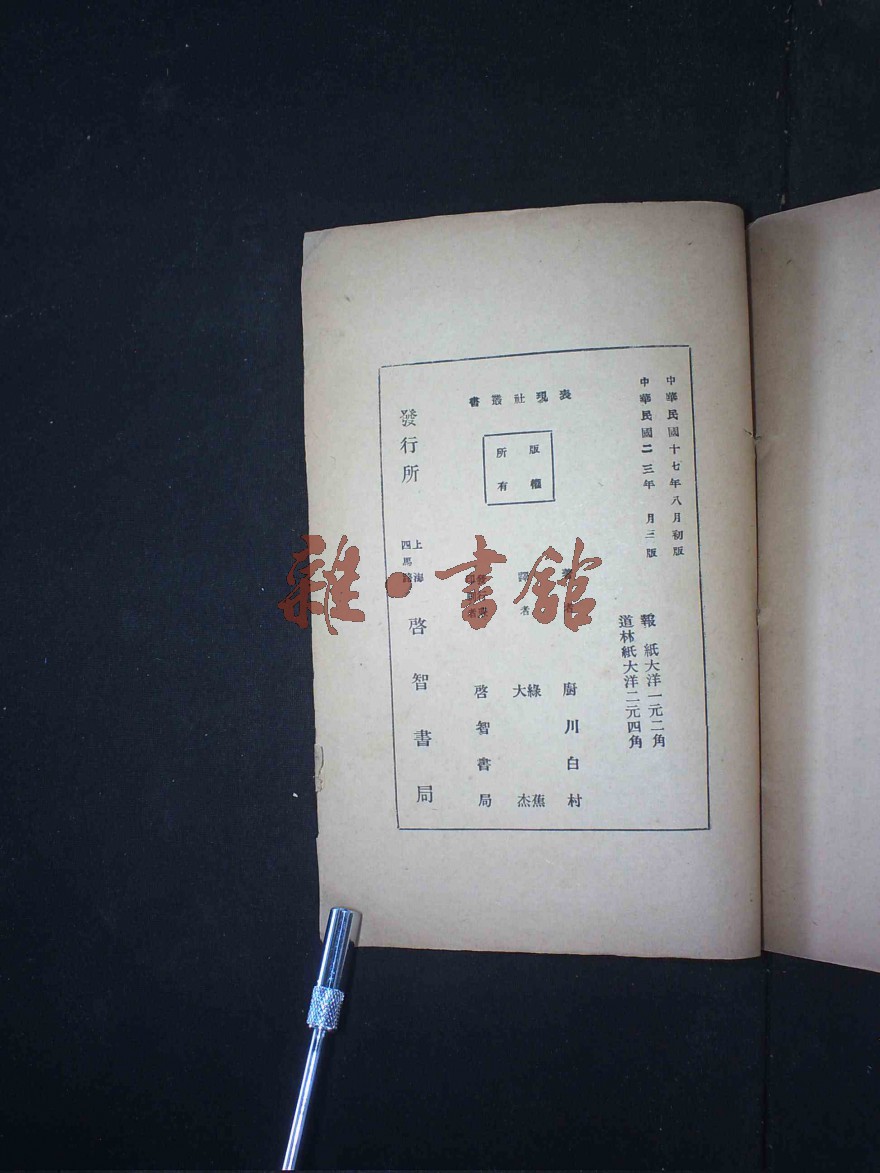 中華民國十七年八月初版
中華民國二三年 月三版
報 紙大洋一元二角
道林紙大洋二元四角
表現社叢書
版權
所有
著 者 廚川白村
譯者 綠蕉
大杰
發行者
印刷者 啓智書局
發行所 上海
四馬路 啓智書局
雜·書館